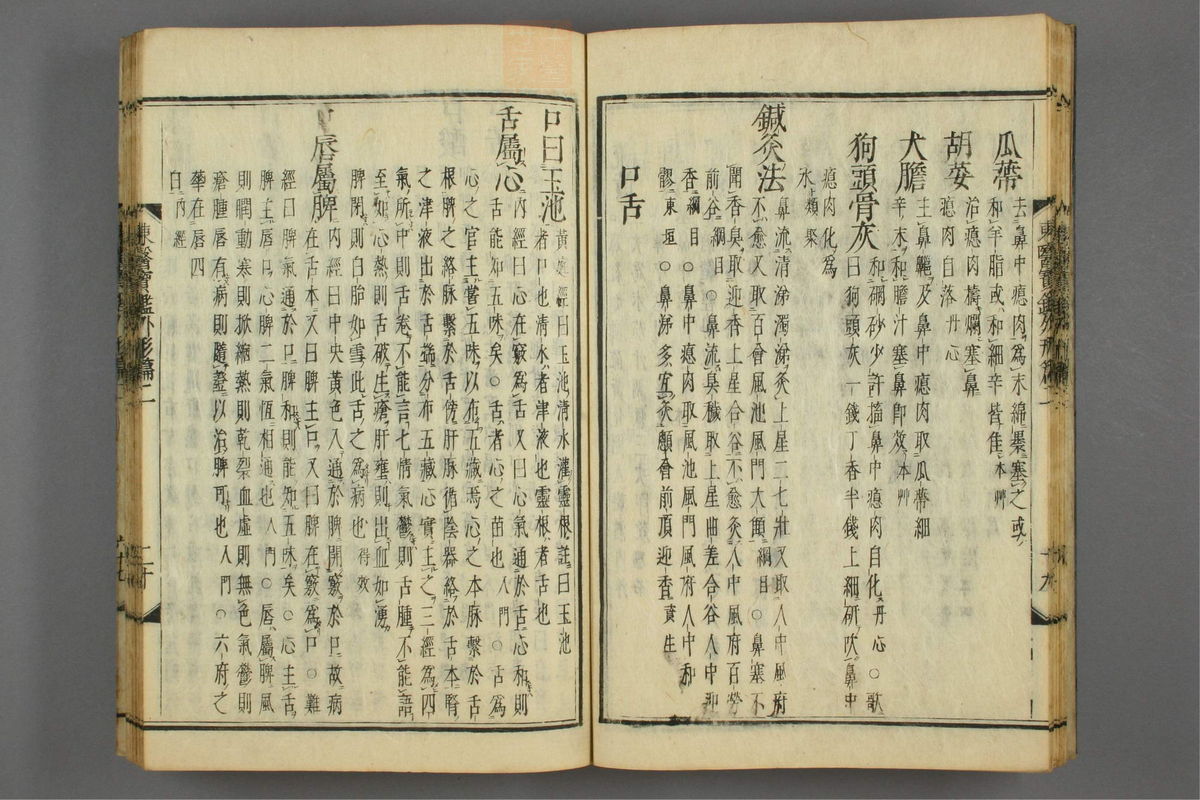 瓜蔕
去鼻中瘜肉爲末綿裹塞之或
和羊脂或和細辛皆佳本艸
胡荽
治瘜肉擣爛塞鼻
瘜肉自落丹心
犬膽
主鼻齆及鼻中瘜肉取瓜蔕細
辛末和膽汁塞鼻卽效本艸
狗頭骨灰
和硇砂少許搐鼻中瘜肉自化丹心○一歌
曰狗頭灰一錢丁香半錢上細研吹鼻中
瘜肉化爲
水類聚
鍼灸法
鼻流清涕濁涕灸上星二七壯又取人中風府
不愈又取百會風池風門大顀綱目○鼻塞不
聞香臭取迎香上星合谷不愈灸人中風府百勞
前谷綱目○鼻流臭穢取上星曲差合谷人中迎
香綱目○鼻中瘜肉取風池風門風府人中和
髎東垣○鼻涕多宜灸顖會前頂迎香資生
口舌
口曰玉池
黃庭經曰玉池清水灌靈根註曰玉池
者口也清水者津液也靈根者舌也
舌屬心
內經曰心在竅爲舌又曰心氣通於舌心和則
舌能知五味矣○舌者心之苗也入門○舌爲
心之官主嘗五味以布五藏焉心之本脉繫於舌
根脾之絡脉繫於舌傍肝脉循陰器絡於舌本腎
之津液出於舌端分布五藏心實主之三經爲四
氣所中則舌卷不能言七情氣鬱則舌腫不能語
至如心熱則舌破生瘡肝壅則出血如湧
脾閉則白胎如雪此舌之爲病也得效
口唇屬脾
內經曰中央黃色入通於脾開竅於口故病
在舌本又曰脾主口又曰脾在竅爲口○難
經曰脾氣通於口脾和則能知五味矣○心主舌
脾主唇口心脾二氣恆相通也入門○唇屬脾風
則瞤動寒則掀縮熱則乾裂血虛則無色氣鬱則
瘡腫唇有病則隨證以治脾可也入門○六府之
華在唇四
白內經
東醫寶鑑外形篇二
二十
東醫寶鑑外形篇二
十九